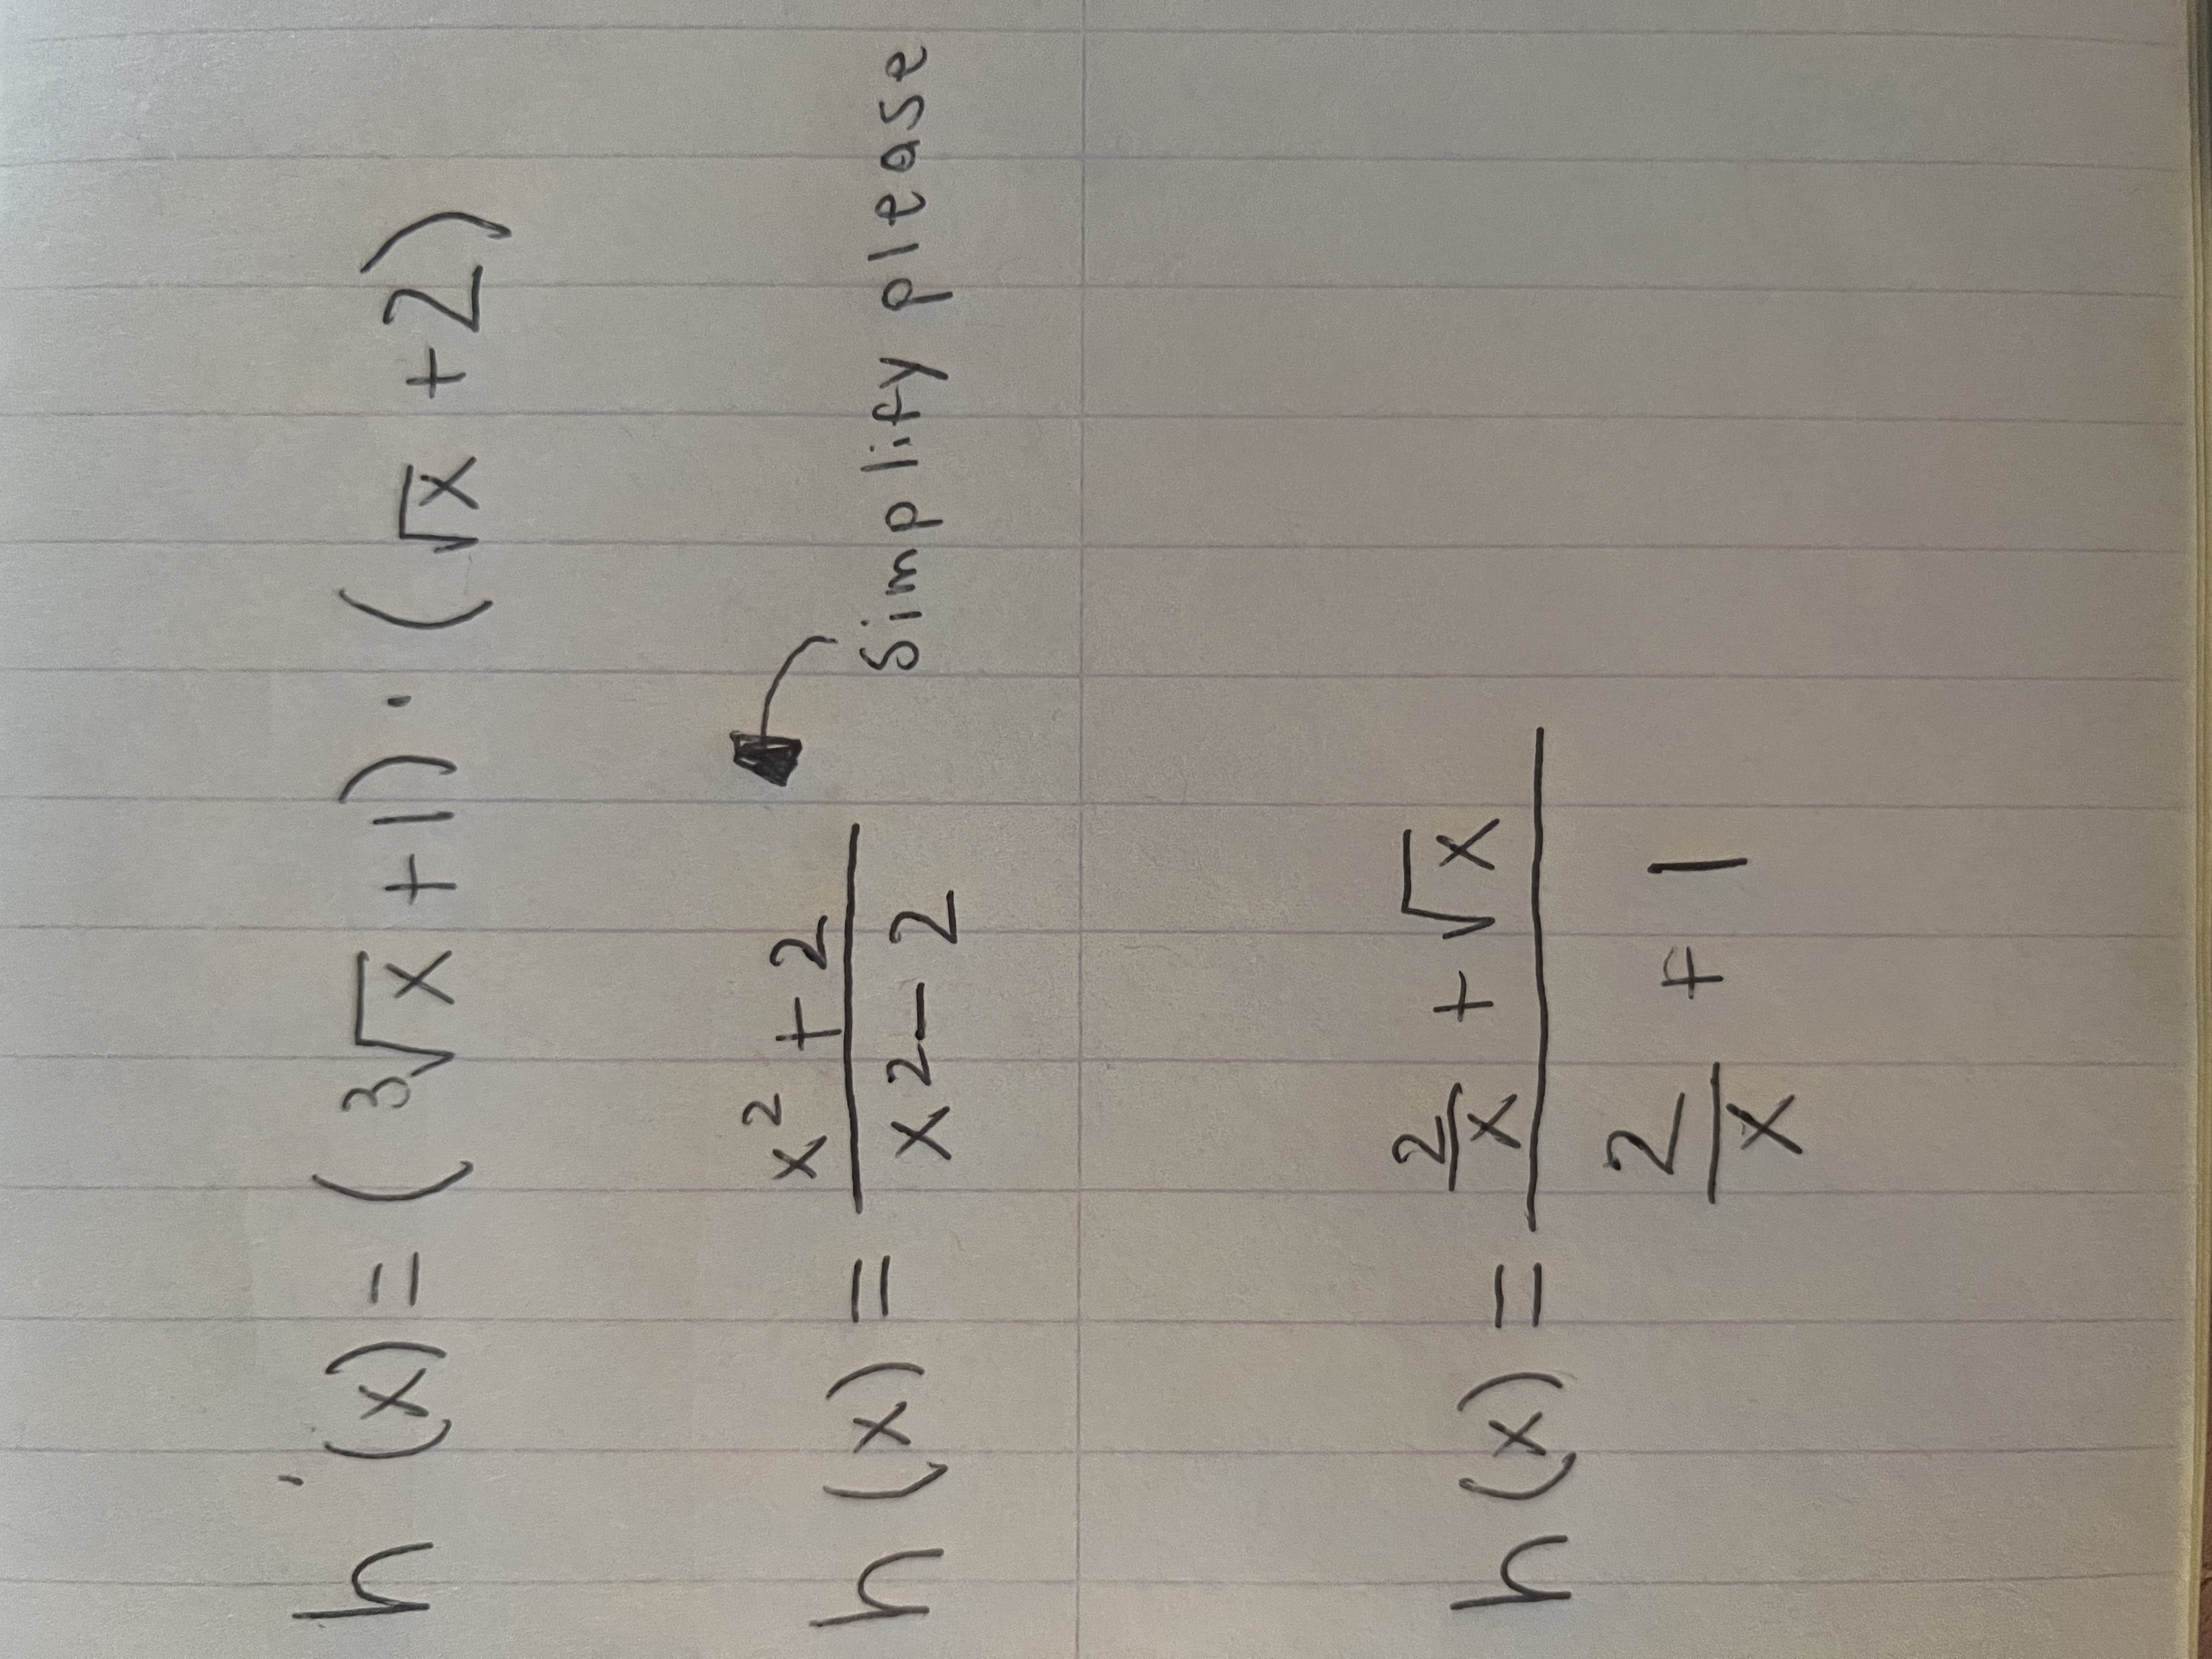 h'(x) = (³√x + 1) · (√x + 2)
h(x) = (x² + 2)/(x² - 2)
Simplify please
h(x) = (2/x + √x)/(2/x + 1)